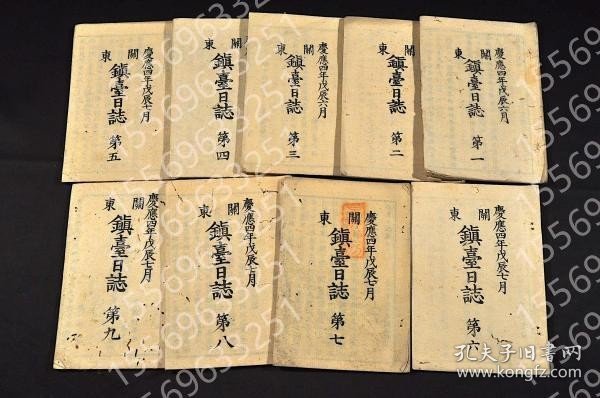 慶應四年戊辰六月
關東
鎮臺日誌 第一
關東
鎮臺日誌 第二
慶應四年戊辰六月
關東
鎮臺日誌 第三
關東
鎮臺日誌 第四
慶應四年戊辰七月
關東
鎮臺日誌 第五
慶應四年戊辰七月
關東
鎮臺日誌 第六
慶應四年戊辰七月
關東
鎮臺日誌 第七
慶應四年戊辰七月
關東
鎮臺日誌 第八
慶應四年戊辰七月
關東
鎮臺日誌 第九
孔夫子旧书网
www.kongfz.com